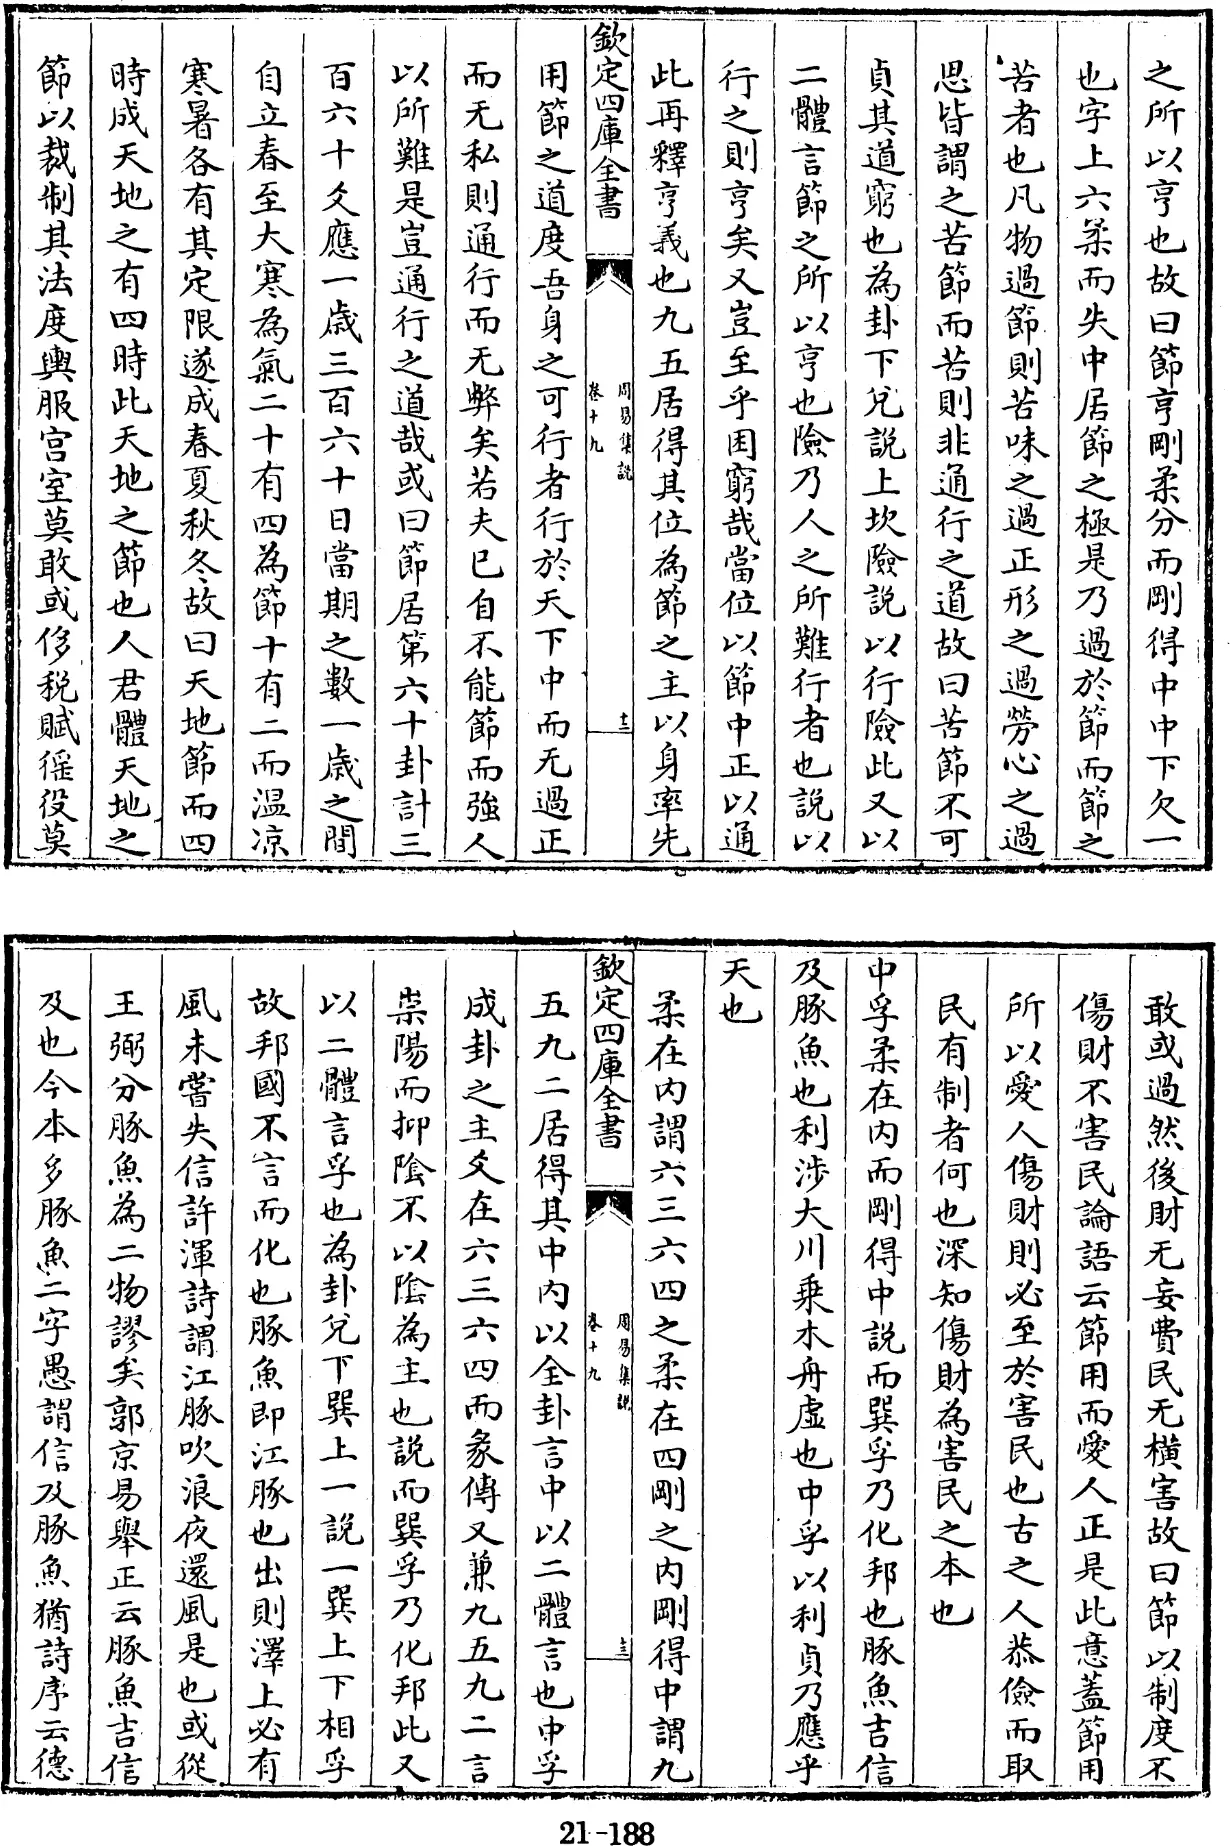 之所以亨也故曰節亨剛柔分而剛得中中下欠一
也字上六柔而失中居節之極是乃過於節而節之
苦者也凡物過節則苦味之過正形之過勞心之過
思皆謂之苦節而苦則非通行之道故曰苦節不可
貞其道窮也為卦下兌說上坎險說以行險此又以
二體言節之所以亨也險乃人之所難行者也說以
行之則亨矣又豈至乎困窮哉當位以節中正以通
此再釋亨義也九五居得其位為節之主以身率先
欽定四庫全書
周易集說
卷十九
十二
用節之道度吾身之可行者行於天下中而无過正
而无私則通行而无弊矣若夫已自不能節而強人
以所難是豈通行之道哉或曰節居第六十卦計三
百六十爻應一歲三百六十日當期之數一歲之間
自立春至大寒為氣二十有四為節十有二而温凉
寒暑各有其定限遂成春夏秋冬故曰天地節而四
時成天地之有四時此天地之節也人君體天地之
節以裁制其法度輿服宫室莫敢或侈稅賦徭役莫
敢或過然後財无妄費民无橫害故曰節以制度不
傷財不害民論語云節用而愛人正是此意蓋節用
所以愛人傷財則必至於害民也古之人恭儉而取
民有制者何也深知傷財為害民之本也
中孚柔在内而剛得中說而巽孚乃化邦也豚魚吉信
及豚魚也利涉大川乗木舟虚也中孚以利貞乃應乎
天也
柔在内謂六三六四之柔在四剛之内剛得中謂九
欽定四庫全書
周易集說
卷十九
十三
五九二居得其中内以全卦言中以二體言也中孚
成卦之主爻在六三六四而彖傳又兼九五九二言
崇陽而抑陰不以陰為主也說而巽孚乃化邦此又
以二體言孚也為卦兌下巽上一說一巽上下相孚
故邦國不言而化也豚魚即江豚也出則澤上必有
風未嘗失信許渾詩謂江豚吹浪夜還風是也或從
王弼分豚魚為二物謬矣郭京易舉正云豚魚吉信
及也今本多豚魚二字愚謂信及豚魚猶詩序云德
21-188